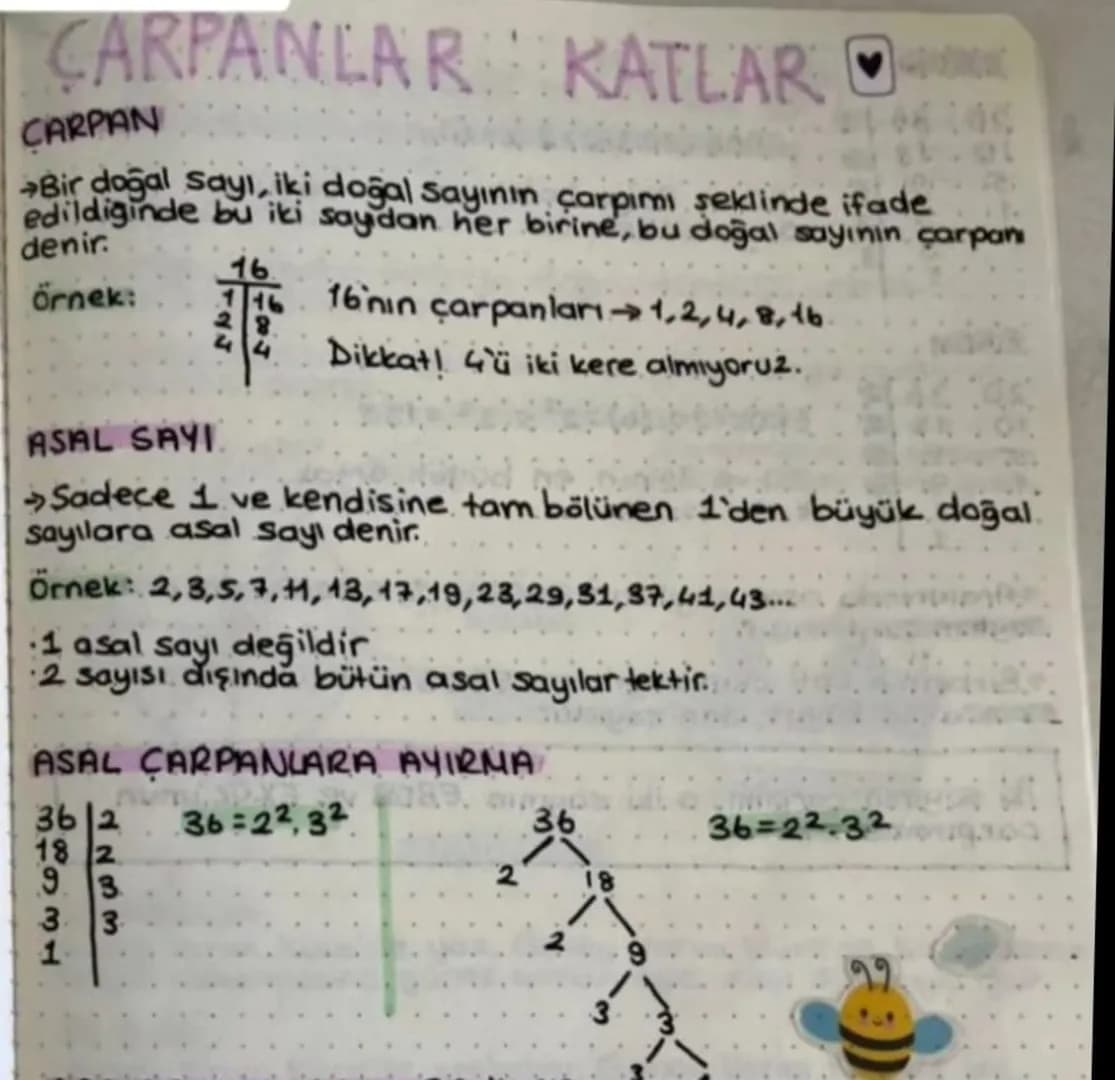 ÇARPANLAR KATLAR
ÇARPAN
→Bir doğal sayı, iki doğal sayının çarpımı şeklinde ifade
edildiğinde bu iki saydan her birine, bu doğal sayının çarpanı
denir.
Örnek:
16
1 | 16
2 | 8
4 | 4
16'nın çarpanları → 1, 2, 4, 8, 16
Dikkat! 4'ü iki kere almıyoruz.
ASAL SAYI
→ Sadece 1 ve kendisine tam bölünen 1'den büyük doğal
sayılara asal sayı denir.
Örnek: 2, 3, 5, 7, 11, 13, 17, 19, 23, 29, 31, 37, 41, 43...
·1 asal sayı değildir
·2 sayısı dışında bütün asal sayılar tektir.
ASAL ÇARPANLARA AYIRMA
36 | 2
18 | 2
9 | 3
3 | 3
1
36 = 2². 3²
36
2 18
2 9
3 3
3
36=2².3²